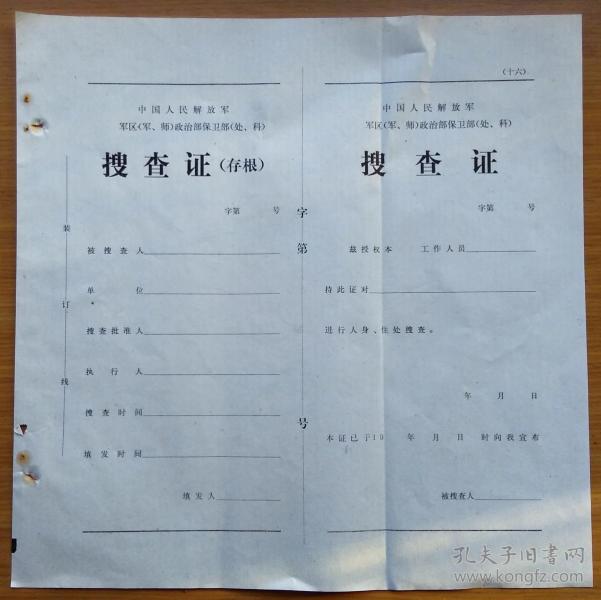 中国人民解放军
军区(军、师)政治部保卫部(处、科)
搜查证(存根)
字第 号
被搜查人
单位
搜查批准人
执行人
搜查时间
填发时间
填发人
装订线
字第 号
(十六)
中国人民解放军
军区(军、师)政治部保卫部(处、科)
搜查证
字第 号
兹授权本 工作人员
持此证对
进行人身、住处搜查。
年 月 日
本证已于19 年 月 日 时向我宣布
被搜查人
孔夫子旧书网
www.kongfz.com